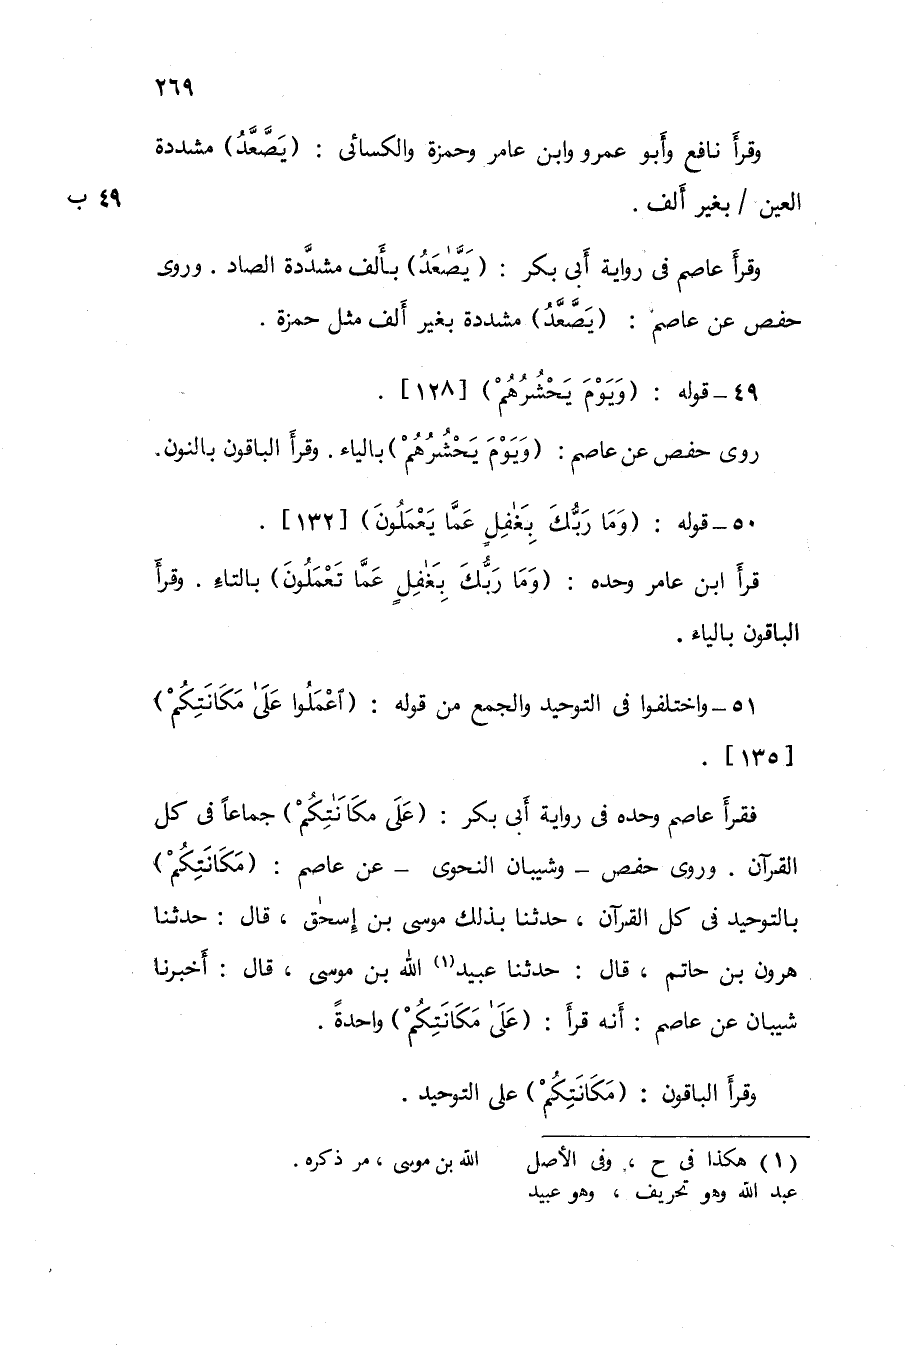 ٢٦٩
وقرأ نافع وأبو عمرو وابن عامر وحمزة والكسائى : (يَصَّعَّدُ) مشددة
العين / بغير ألف .
٤٩ ب
وقرأ عاصم فى رواية أبى بكر : (يَصَّٰعَدُ) بألف مشدَّدة الصاد . وروى
حفص عن عاصم : (يَصَّعَّدُ) مشددة بغير ألف مثل حمزة .
٤٩ ــ قوله : (وَيَوْمَ يَحْشُرُهُمْ) [١٢٨] .
روى حفص عن عاصم : (وَيَوْمَ يَحْشُرُهُمْ) بالياء . وقرأ الباقون بالنون .
٥٠ ــ قوله : (وَمَا رَبُّكَ بِغَٰفِلٍ عَمَّا يَعْمَلُونَ) [١٣٢] .
قرأ ابن عامر وحده : (وَمَا رَبُّكَ بِغَٰفِلٍ عَمَّا تَعْمَلُونَ) بالتاء . وقرأ
الباقون بالياء .
٥١ ــ واختلفوا فى التوحيد والجمع من قوله : (ٱعْمَلُوا عَلَىٰ مَكَانَتِكُمْ)
[١٣٥] .
فقرأ عاصم وحده فى رواية أبى بكر : (عَلَى مكَانَٰتِكُمْ) جماعاً فى كل
القرآن . وروى حفص ــ وشيبان النحوى ــ عن عاصم : (مَكَانَتِكُمْ)
بالتوحيد فى كل القرآن ، حدثنا بذلك موسى بن إسحٰق ، قال : حدثنا
هرون بن حاتم ، قال : حدثنا عبيد(١) الله بن موسى ، قال : أخبرنا
شيبان عن عاصم : أنه قرأ : (عَلَىٰ مَكَانَتِكُمْ) واحدةً .
وقرأ الباقون : (مَكَانَتِكُمْ) على التوحيد .
(١) هكذا فى ح ، وفى الأصل
عبد الله وهو تحريف ، وهو عبيد
الله بن موسى ، مر ذكره .